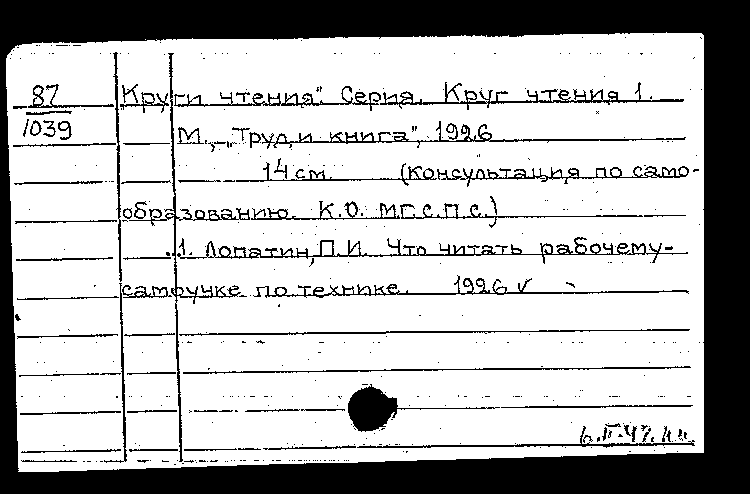 87 "Круги чтения". Серия. Круг чтения 1.
1039 М., "Труд и книга", 1926
14 см. (Консультация по само-
образованию. К.О. МГ.С.П.С.)
1. Лопатин, П.И. Что читать рабочему-
самоучке по технике. 1926 v